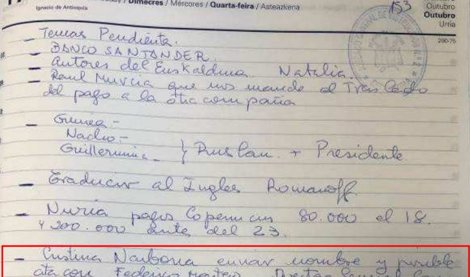 Ignacio de Antioquía
Dimecres / Mércores / Quarta-feira / Asteazkena
Octubre
Outubro
Urria
153
290-75
Temas Pendiente.
- BANCO SANTANDER.
- Autores del Euskalduna. Natalia.
- Raul Murcia que nos mande el
del pago a la otra compañia
- Guinea -
Nacho -
Guillermina - } Ruslan. + Presidente
- Traducir al Ingles Romanoff.
- Nuria pagos Copernicus 80.000 el 18.
y 200.000 antes del 23.
- Cristina Narbona enviar nombre y posible
cita con Federico